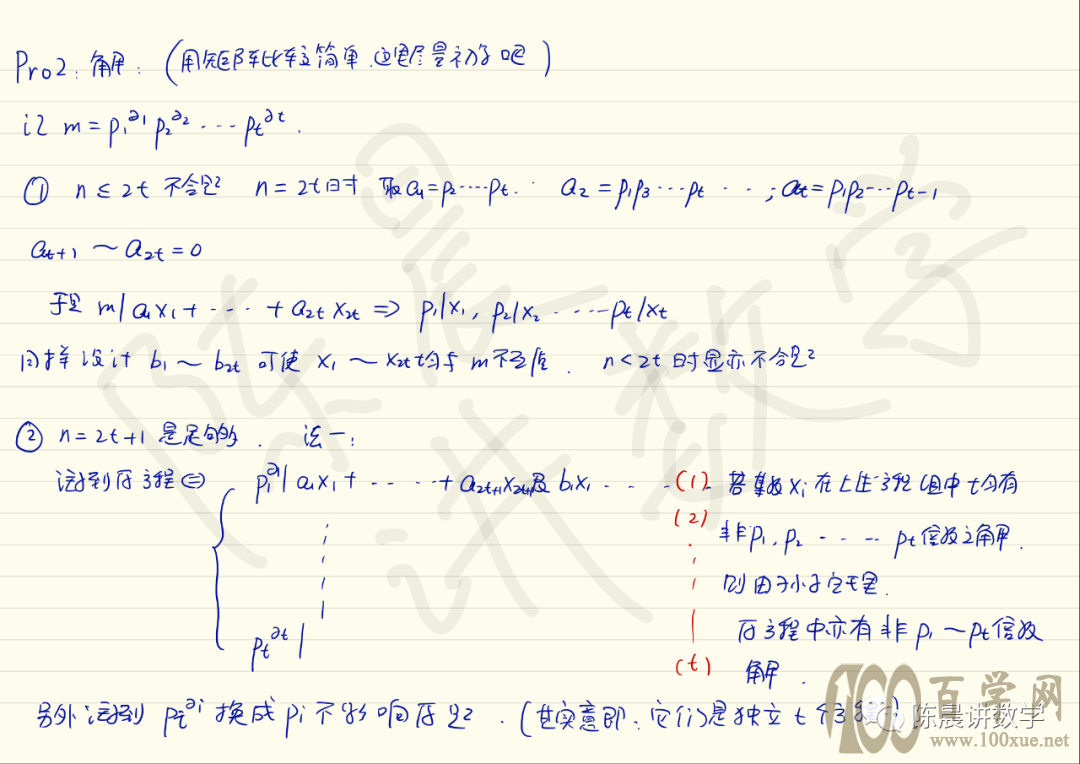 Pro2: 解: (用矩阵比较简单.这里尽量初等吧)
记 m = p₁^∂₁ p₂^∂₂ ···· pt^∂t .
① n ≤ 2t 不合题 n = 2t 时 取 a₁ = p₂····pt. a₂ = p₁p₃····pt ··· ; at = p₁p₂···pt-1
at+1 ~ a2t = 0
于是 m | a₁x₁ + ···· + a2t x2t ⇒ p₁|x₁, p₂|x₂ ······ pt|xt
同样设计 b₁ ~ b2t 可使 x₁ ~ x2t 均与 m 不互质. n<2t 时显亦不合题
② n = 2t+1 是足够的. 法一:
注意到原方程⇔ p₁^∂₁ | a₁x₁ + ····· + a2t+1x2t+1及 b₁x₁ ···· (1) 若某数 xi 在上述方程组中 t 均有
(2) 非 p₁, p₂ ····· pt 倍数之解.
则由孙子定理.
原方程中亦有非 p₁ ~ pt 倍数
pt^∂t | (t) 解.
另外注意到 pi^∂i 换成 pi 不影响原题. (其实意即: 它们是独立 t 个方程)
陈晨讲数学
100百学网
www.100xue.net
陈晨试数学